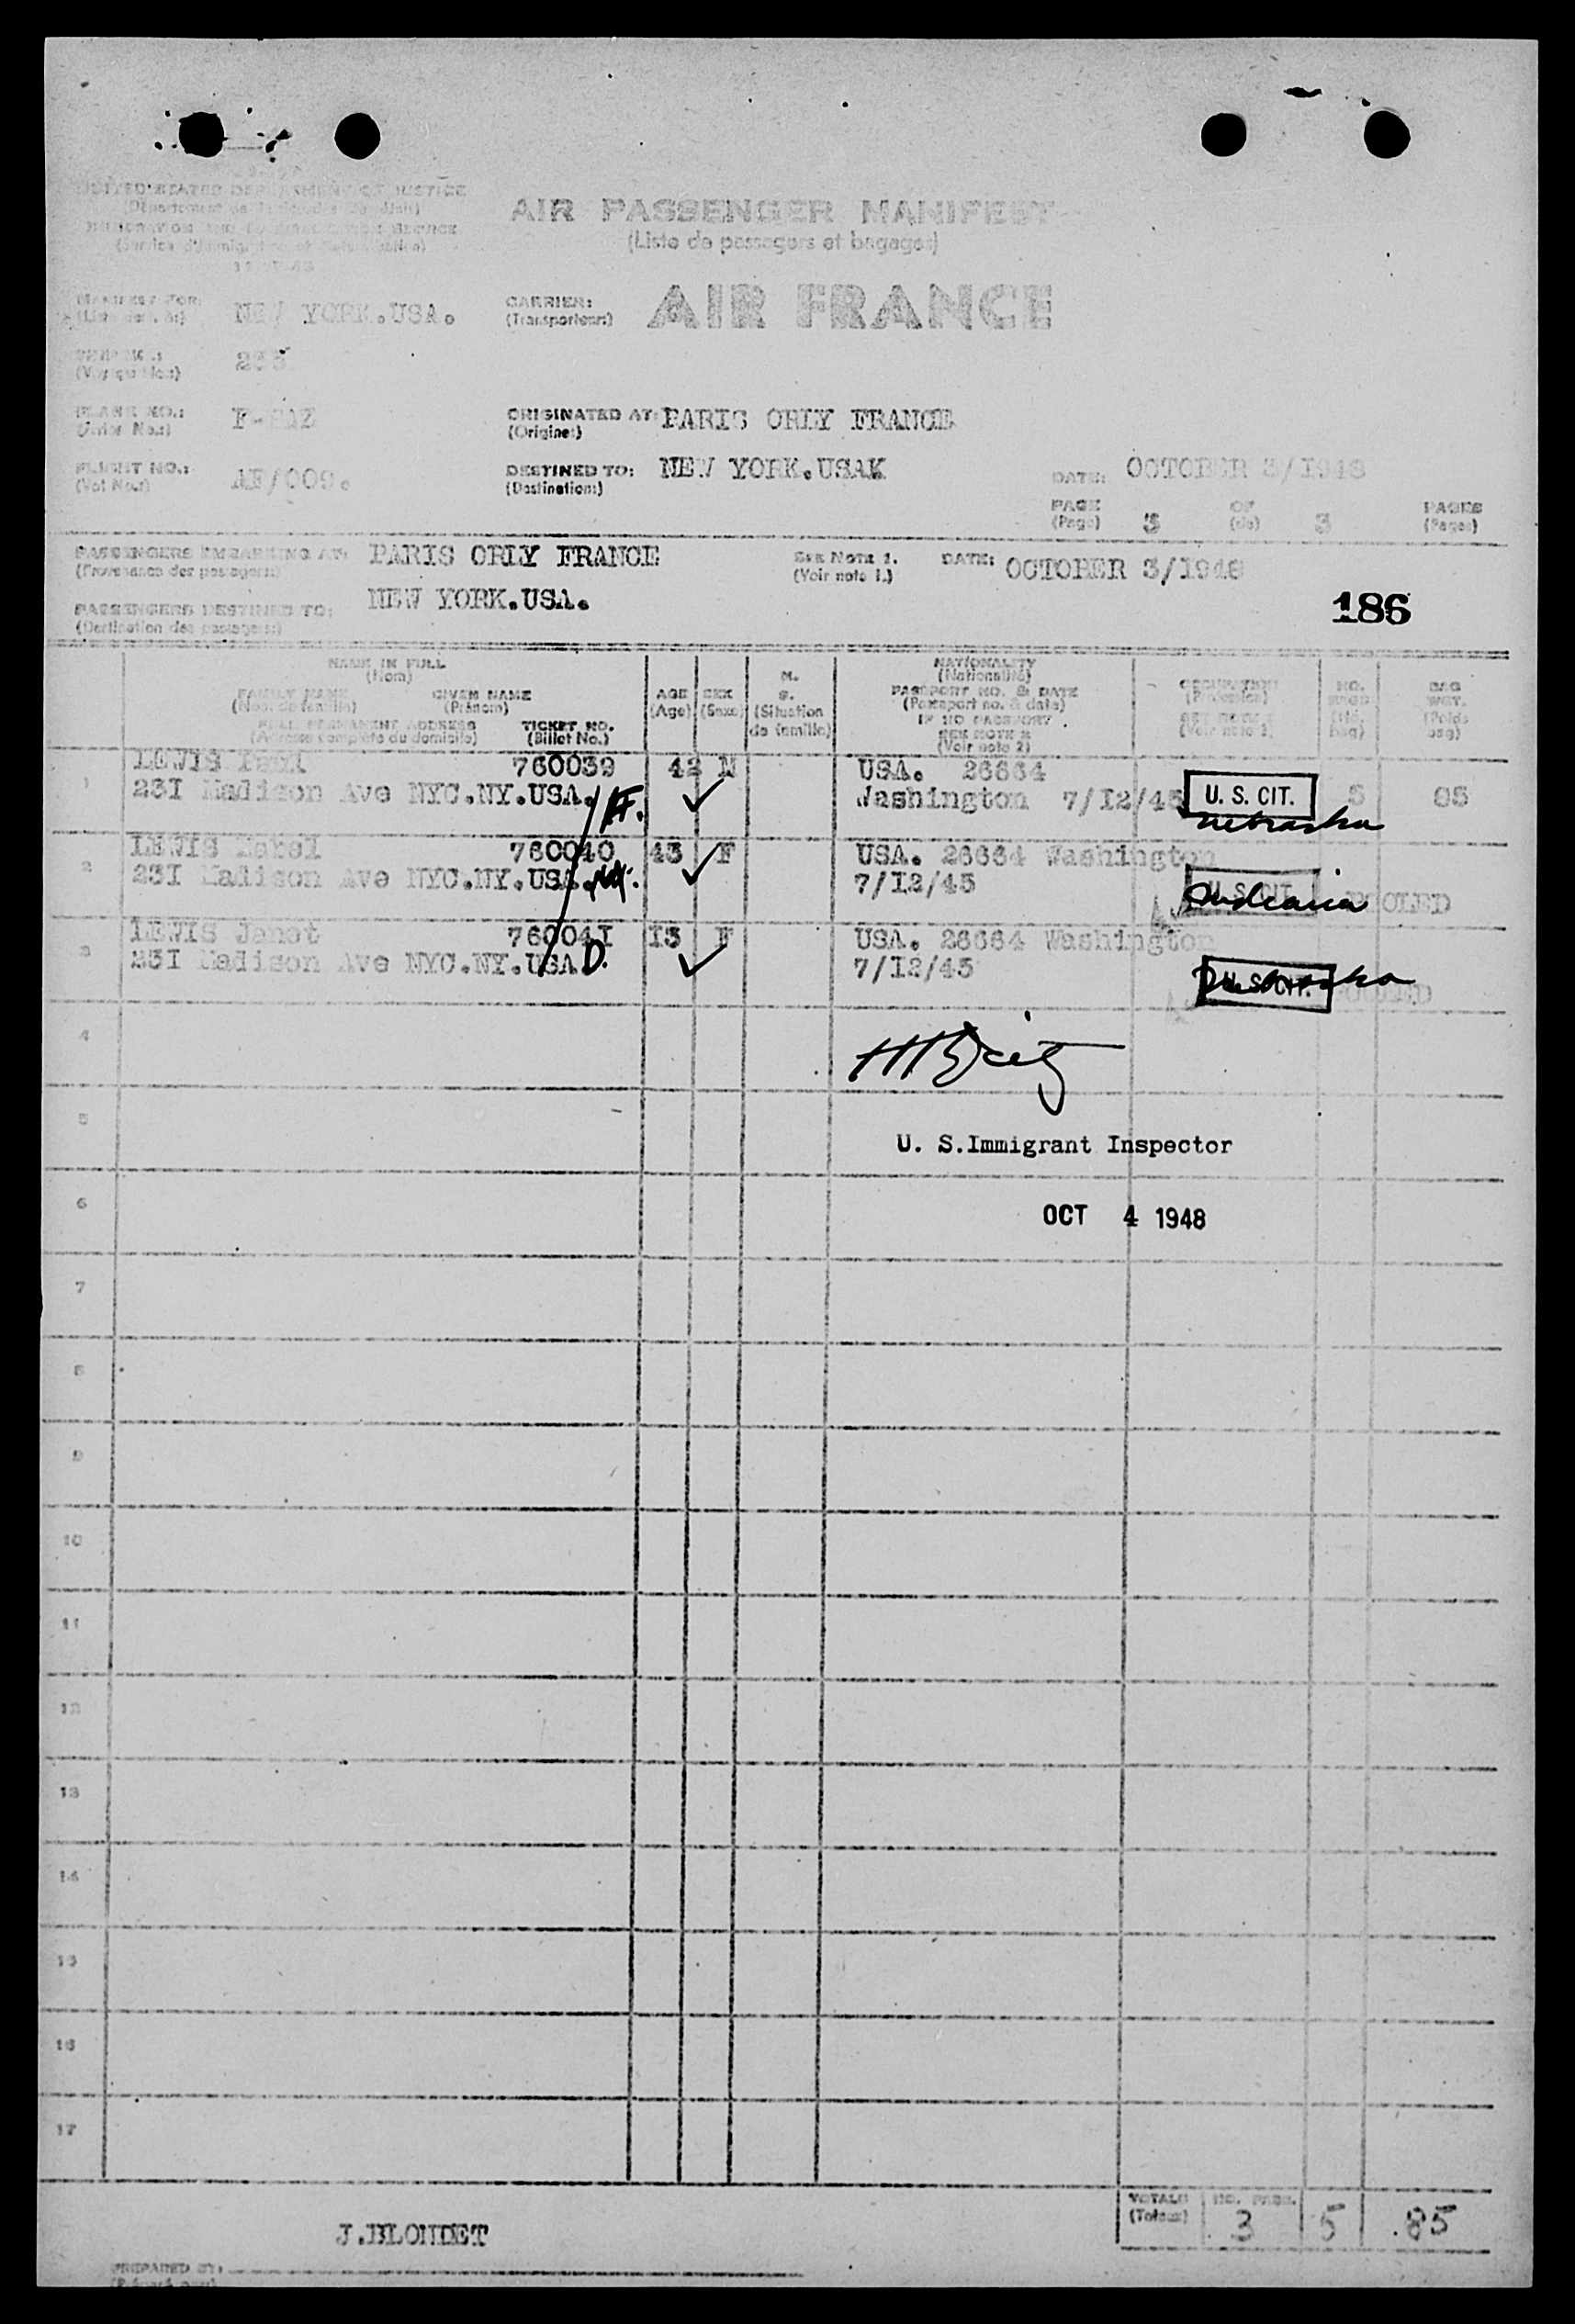 UNITED STATES DEPARTMENT OF JUSTICE
AIR PASSENGER MANIFEST
(Liste de passagers et bagages)
NEW YORK.USA.
CARRIER:
(Transporteur:)
AIR FRANCE
PLANE NO.:
ORIGINATED AT: PARIS ORLY FRANCE
(Origine:)
FLIGHT NO.: AF/009.
(Vol No.:)
DESTINED TO: NEW YORK.USAK
(Destination:)
DATE: OCTOBER 3/1948
PAGE 3 OF 3 PAGES
(Page) (de) (Pages)
PASSENGERS EMBARKING AT: PARIS ORLY FRANCE
(Provenance des passagers:)
SEE NOTE 1. DATE: OCTOBER 3/1948
(Voir note 1.)
PASSENGERS DESTINED TO: NEW YORK.USA.
(Destination des passagers:)
186
NAME IN FULL
(Nom)
FAMILY NAME GIVEN NAME
(Nom de famille) (Prénom)
FULL PERMANENT ADDRESS TICKET NO.
(Adresse complète du domicile) (Billet No.)
AGE SEX M. S.
(Age) (Sexe) (Situation de famille)
NATIONALITY
(Nationalité)
PASSPORT NO. & DATE
(Passport no. & date)
IF NO PASSPORT
SEE NOTE 2
(Voir note 2)
OCCUPATION
(Profession)
NO. BAGS
BAG WGT.
(Poids bag)
1 LEWIS 760039 42 M USA. 26664
231 Madison Ave NYC.NY.USA. Washington 7/12/45 U. S. CIT. 5 85
Nebraska
2 LEWIS 760040 43 F USA. 26664 Washington
231 Madison Ave NYC.NY.USA. 7/12/45 U. S. CIT. POOLED
Indiana
3 LEWIS Janet 760041 15 F USA. 26664 Washington
231 Madison Ave NYC.NY.USA. D. 7/12/45 U. S. CIT. POOLED
4
U. S.Immigrant Inspector
5
6
OCT 4 1948
7
8
9
10
11
12
13
14
15
16
17
TOTALS NO. PASS. 3 5 85
(Totaux)
J.BLONDET
PREPARED BY: